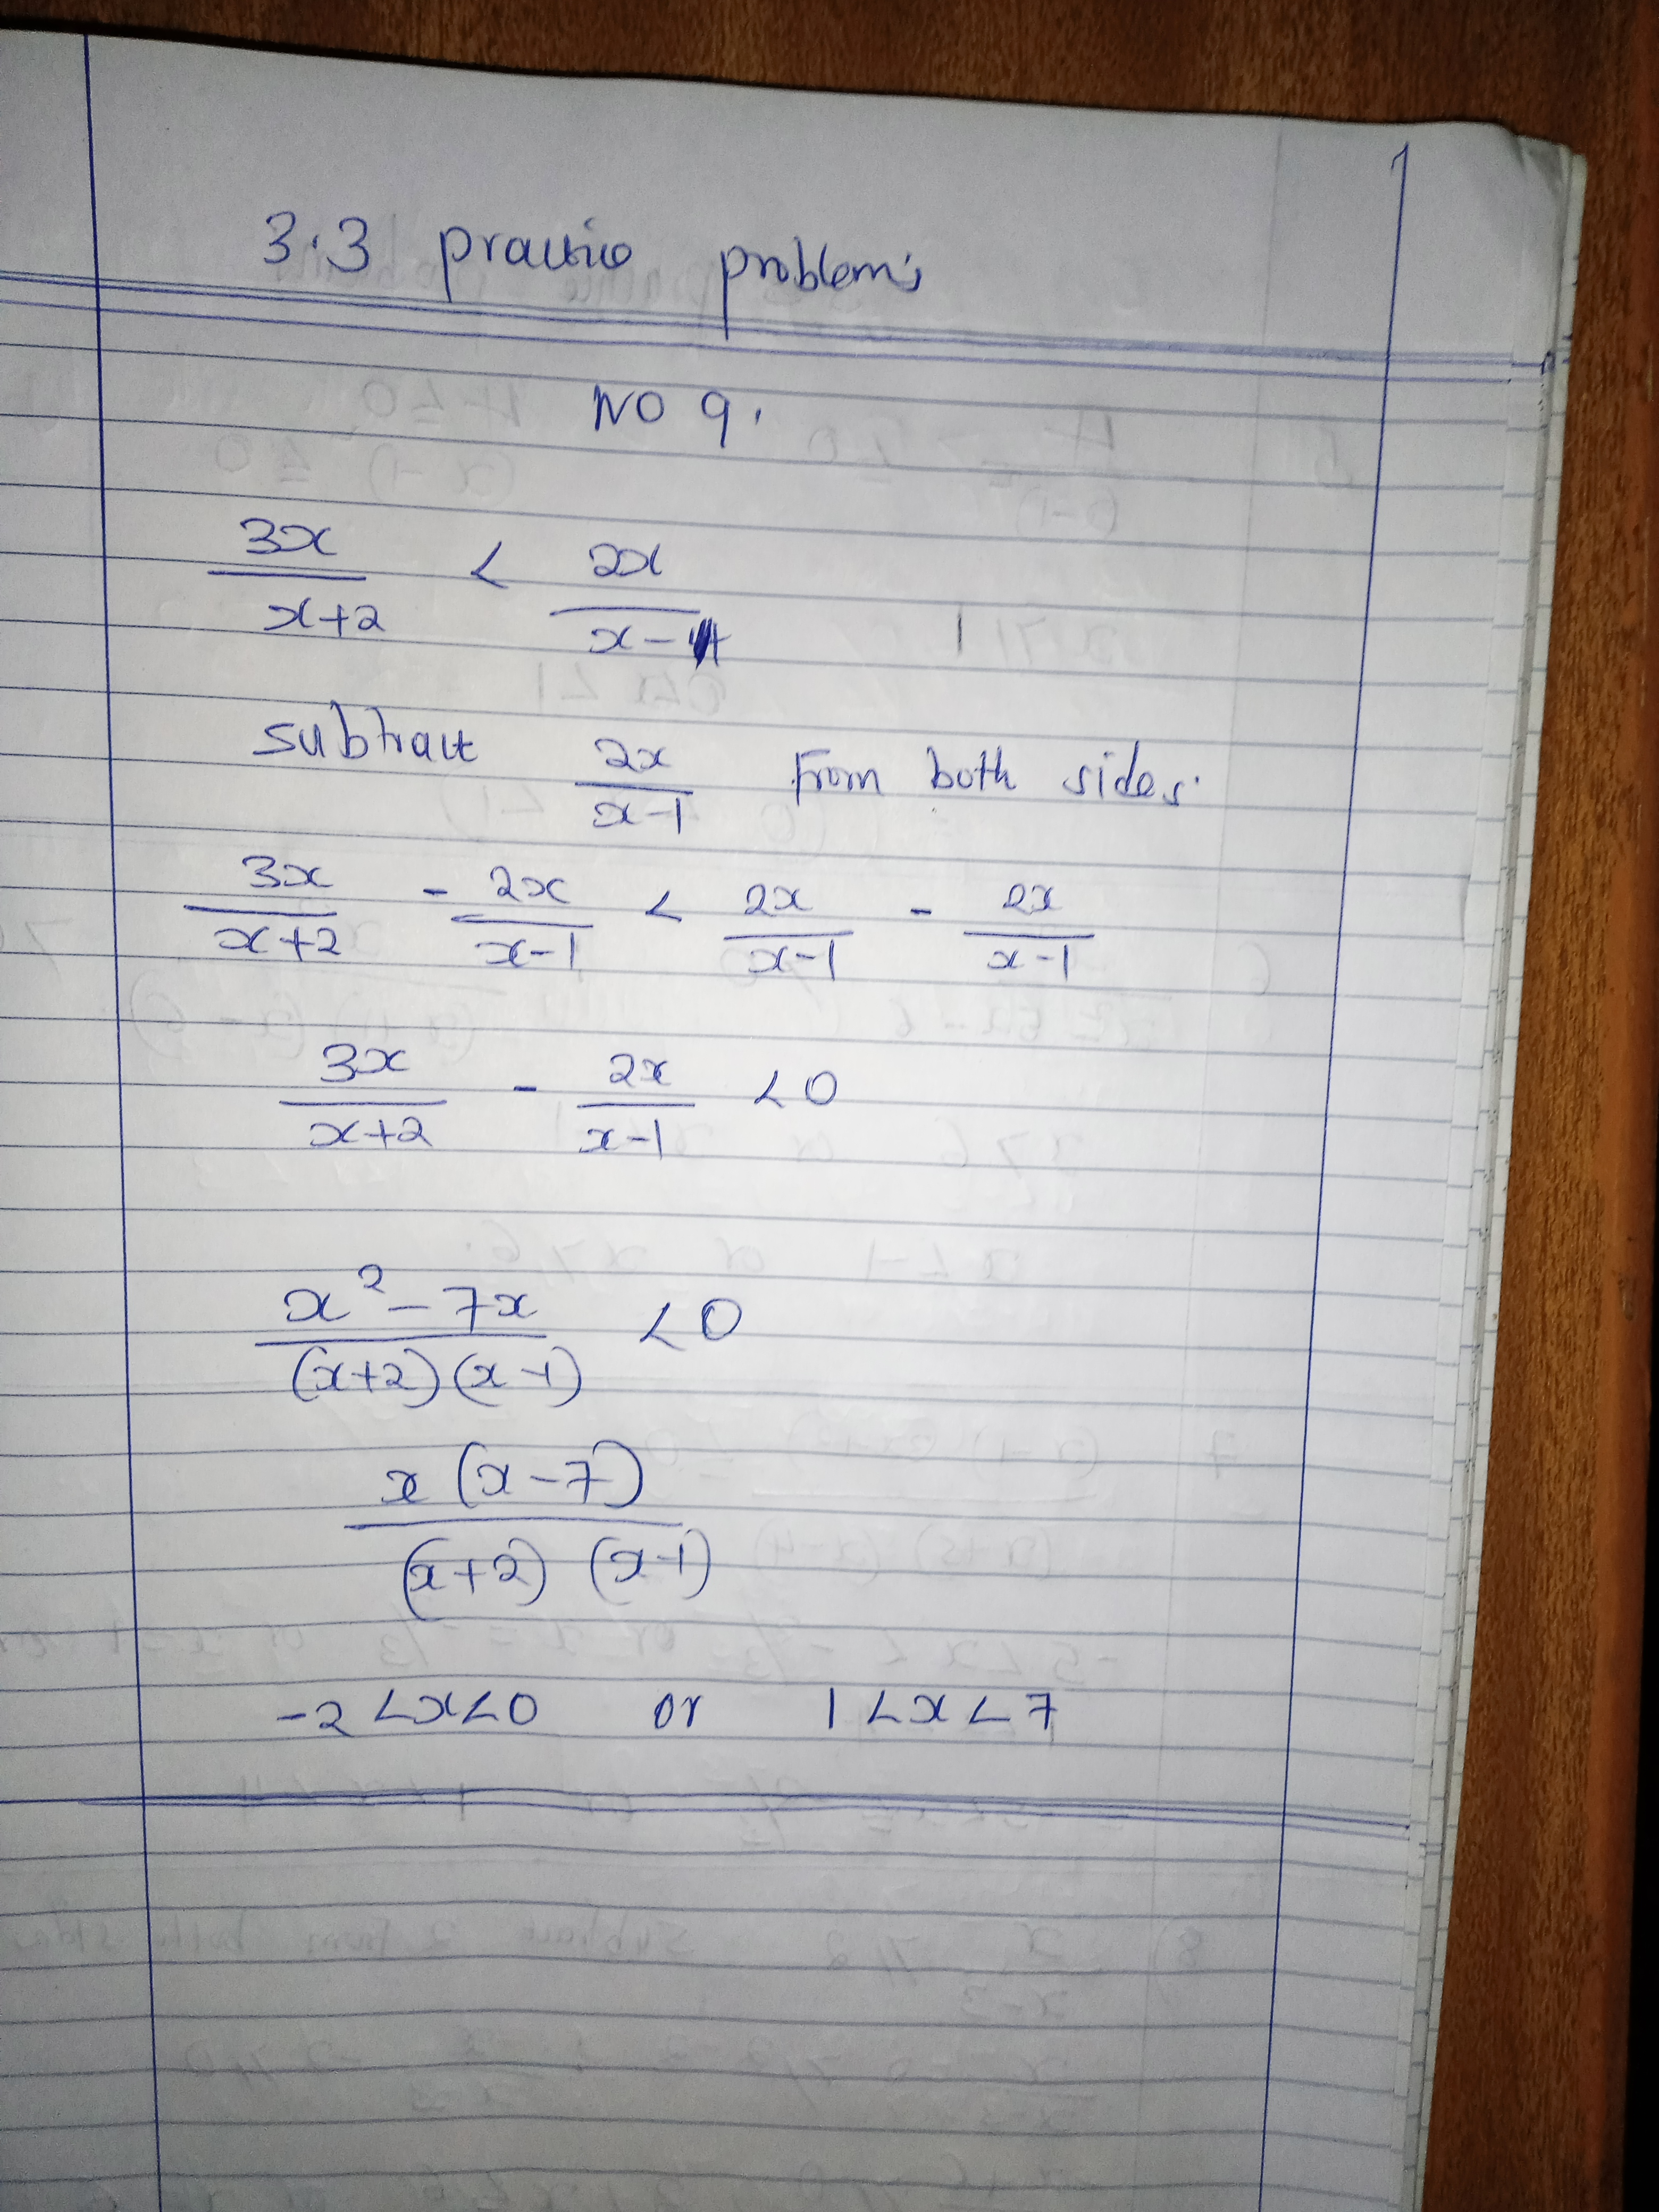 3.3 practice problems
NO 9.
3x/(x+2) < 2x/(x-1)
subtract 2x/(x-1) from both sides.
3x/(x+2) - 2x/(x-1) < 2x/(x-1) - 2x/(x-1)
3x/(x+2) - 2x/(x-1) < 0
(x² - 7x)/((x+2)(x-1)) < 0
x(x-7)/((x+2)(x-1))
-2 < x < 0 or 1 < x < 7